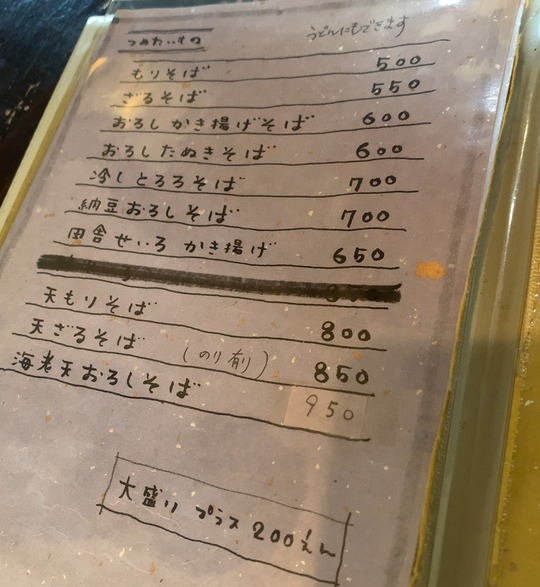 つめたいもの うどんにもできます
もりそば 500
ざるそば 550
おろしかき揚げそば 600
おろしたぬきそば 600
冷しとろろそば 700
納豆おろしそば 700
田舎せいろ かき揚げ 650
天もりそば 800
天ざるそば (のり有り) 850
海老天おろしそば 950
大盛り プラス 200えん